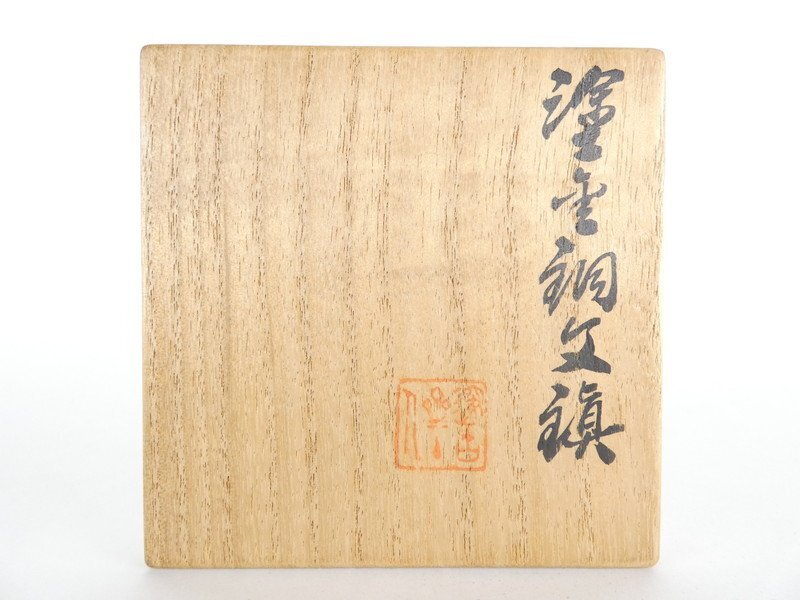 塗金銅文鎮